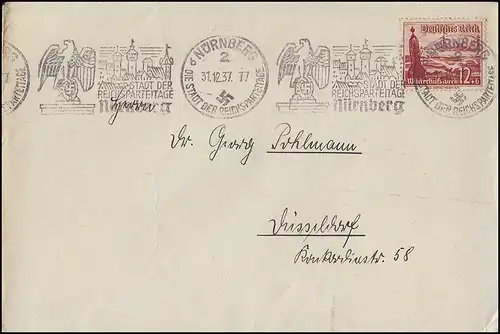 NÜRNBERG
2
31.12.37. 17
DIE STADT DER REICHSPARTEITAGE
STADT DER
REICHSPARTEITAGE
Nürnberg
STADT DER
REICHSPARTEITAGE
Nürnberg
NÜRNBERG
2
DIE STADT DER REICHSPARTEITAGE
Deutsches Reich
Winterhilfswerk 12+6
Herrn
Dr. Georg Pohlmann
Düsseldorf
Konkordiastr. 58